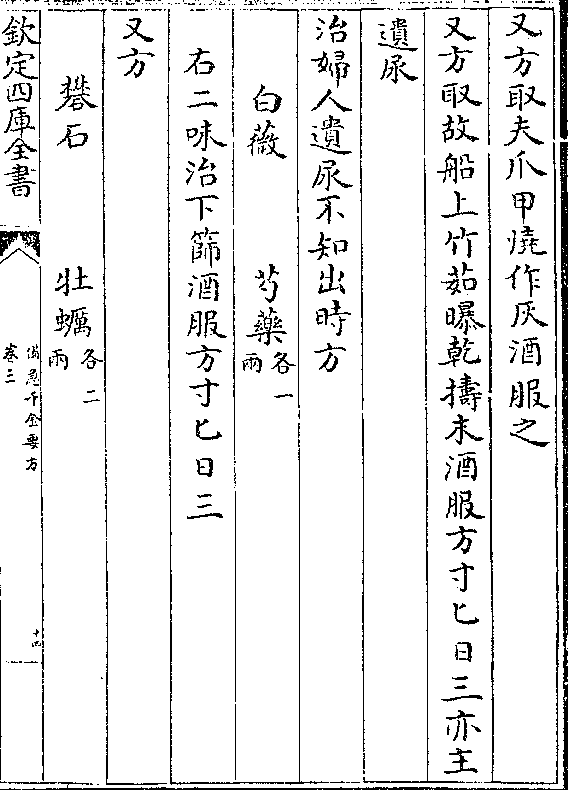 又方取夫爪甲燒作灰酒服之
又方取故船上竹茹曝乾擣末酒服方寸匕日三亦主
遺尿
治婦人遺尿不知出時方
白薇 芍藥各一兩
右二味治下篩酒服方寸匕日三
又方
礬石 牡蠣各二兩
欽定四庫全書
備急千金要方
卷三
十四